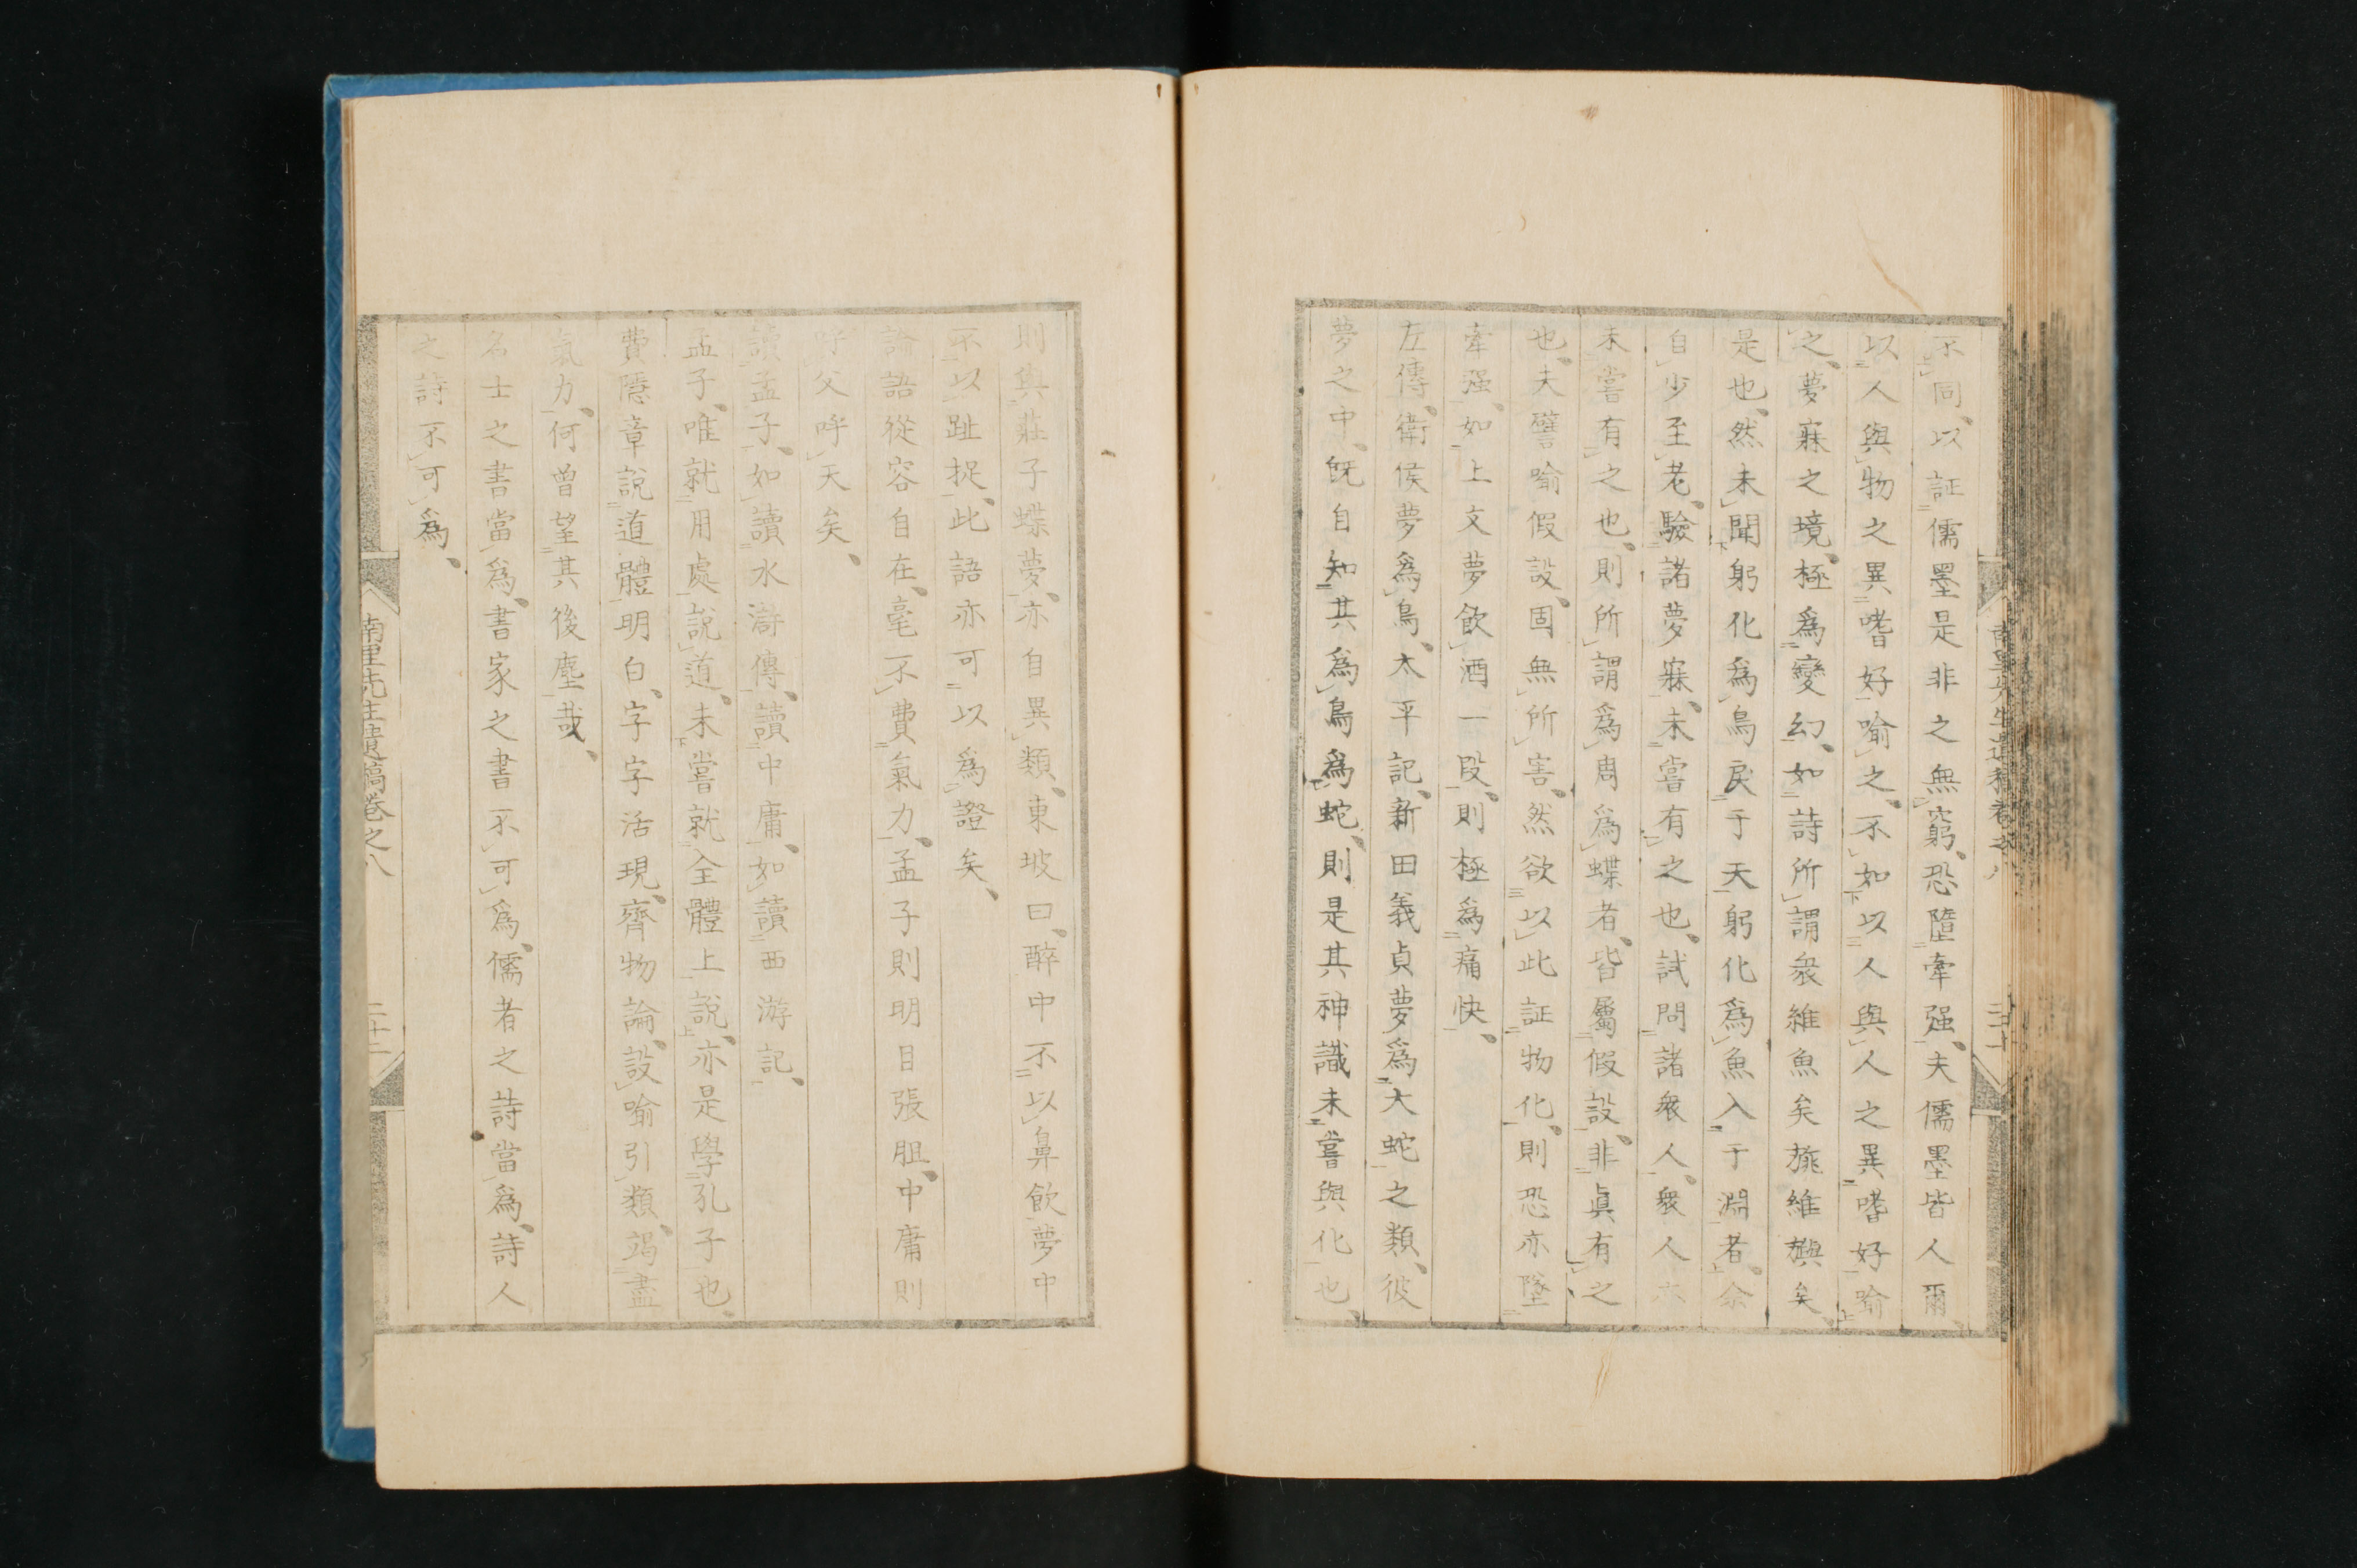 不同、以証儒墨是非之無窮、恐墮牽强、夫儒墨皆人爾、
以人與物之異嗜好喻之、不如以人與人之異嗜好喻
之、夢寐之境、極爲變幻、如詩所謂衆維魚矣旐維旟矣、
是也、然未聞躬化爲鳥戾于天躬化爲魚入于淵者、余
自少至老、驗諸夢寐、未嘗有之也、試問諸衆人、衆人亦
未嘗有之也、則所謂爲周爲蝶者、皆屬假設、非眞有之
也、夫譬喻假設、固無所害、然欲以此証物化、則恐亦墜
牽强、如上文夢飮酒一段、則極爲痛快、
左傳、衛侯夢爲鳥、太平記、新田義貞夢爲大蛇之類、彼
夢之中、旣自知其爲鳥爲蛇、則是其神識未嘗與化也、
南里先生遺稿卷之八
則與莊子蝶夢、亦自異類、東坡曰、醉中不以鼻飮夢中
不以趾捉、此語亦可以爲證矣、
論語從容自在、毫不費氣力、孟子則明目張胆、中庸則
呼父呼天矣、
讀孟子、如讀水滸傳、讀中庸、如讀西游記、
孟子、唯就用處說道、未嘗就全體上說、亦是學孔子也、
費隱章說道體明白、字字活現、齊物論、設喻引類、竭盡
氣力、何曾望其後塵哉、
名士之書當爲、書家之書不可爲、儒者之詩當爲、詩人
之詩不可爲、
南里先生遺稿卷之八
二十二